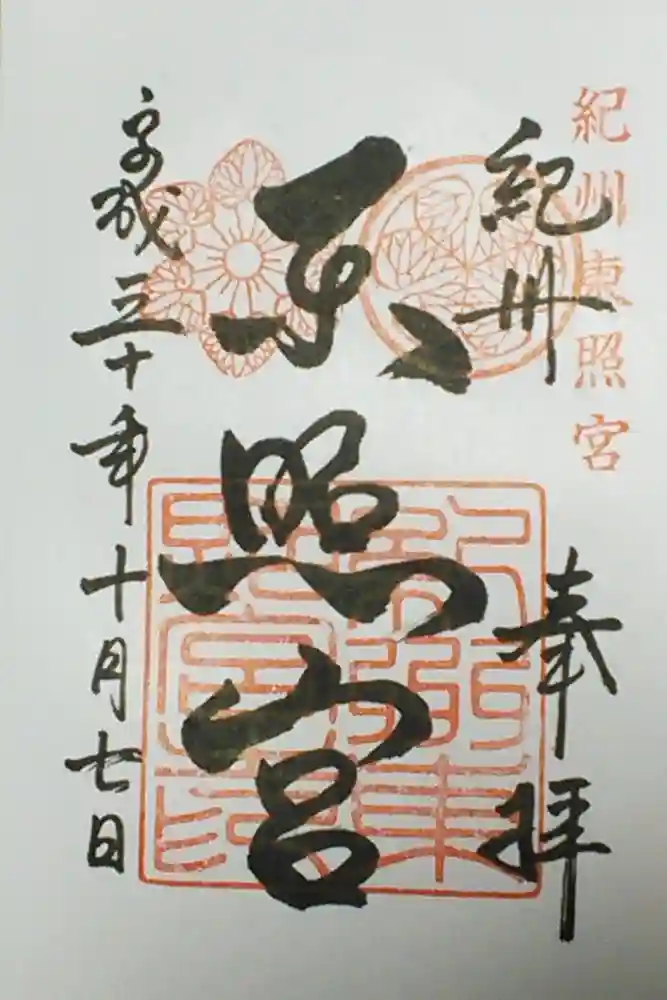 紀州東照宮
紀州
奉拝
東照宮
平成三十年十月七日